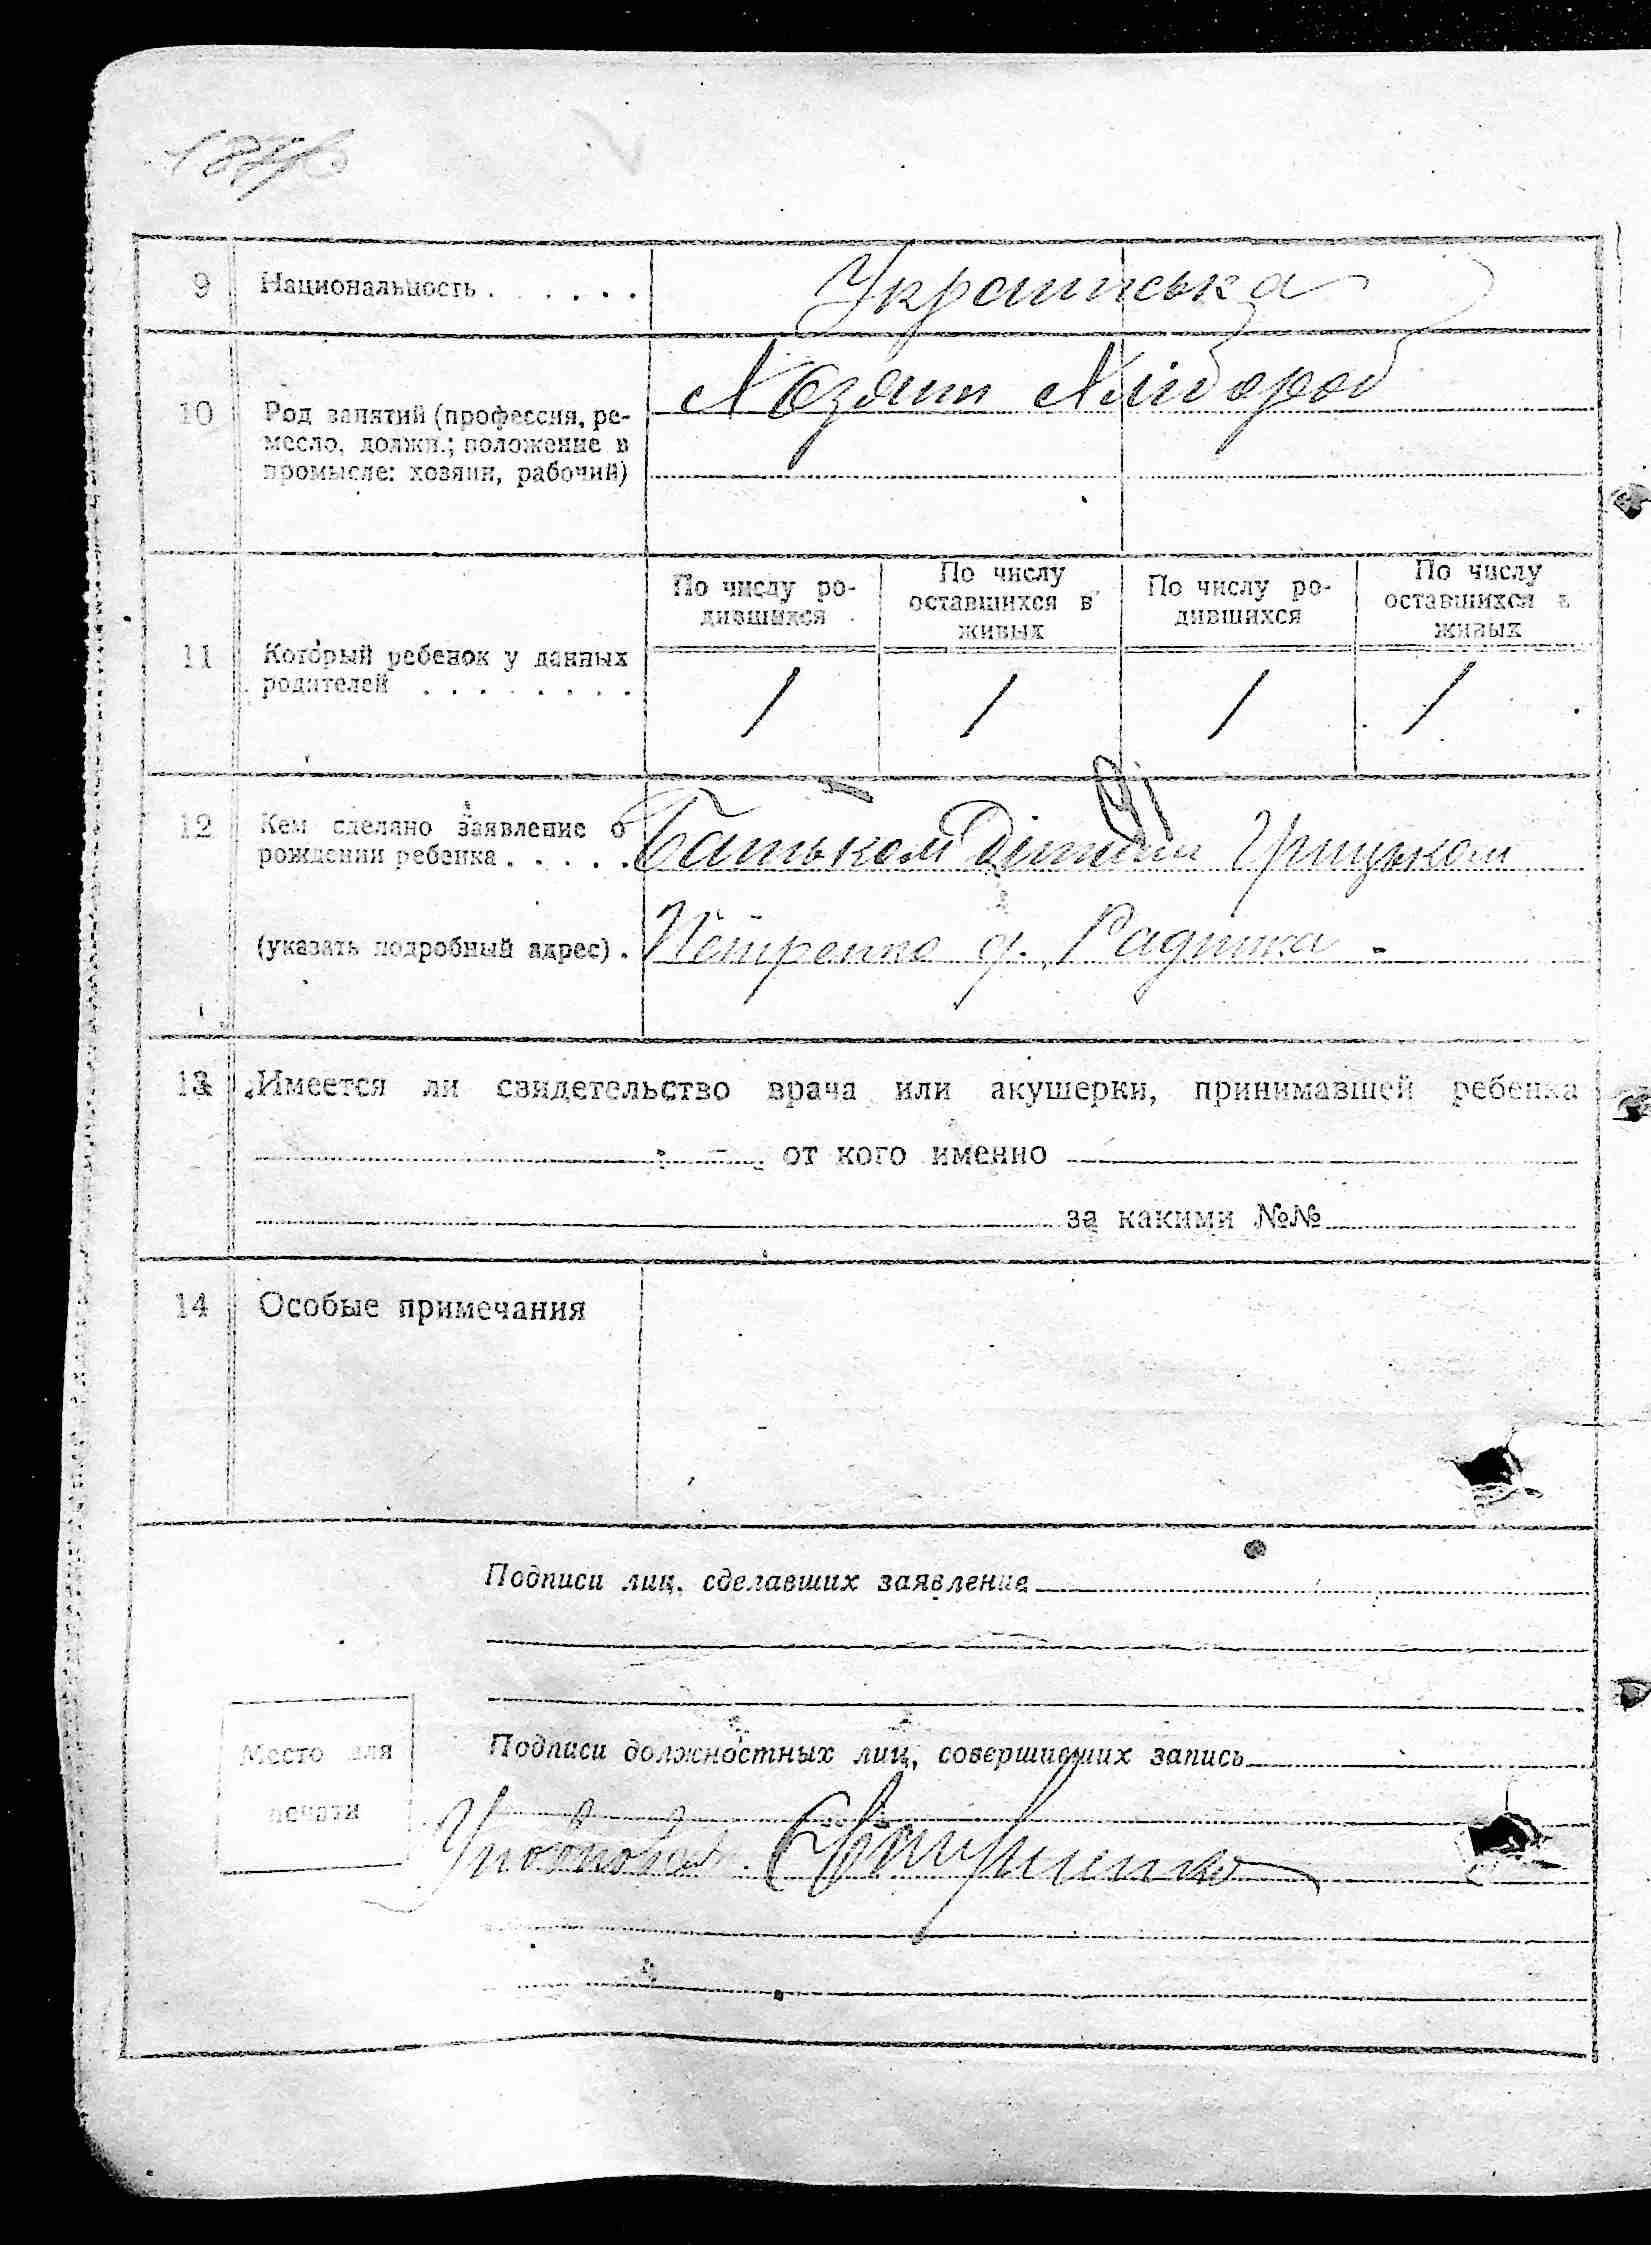 9 Национальность . . . . . . Українська
10 Род занятий (профессия, ре-
месло, должн.; положение в
промысле: хозяин, рабочий)
Хлібороб
11 Который ребенок у данных
родителей . . . . . . . .
По числу ро-
дившихся
По числу
оставшихся в
живых
По числу ро-
дившихся
По числу
оставшихся в
живых
1 1 1 1
12 Кем сделано заявление о
рождении ребенка . . . . . Батьком Грицьком
(указать подробный адрес) . Петренко
13 Имеется ли свидетельство врача или акушерки, принимавшей ребенка
от кого именно
за какими №№
14 Особые примечания
Подписи лиц, сделавших заявление
Место для
печати
Подписи должностных лиц, совершивших запись